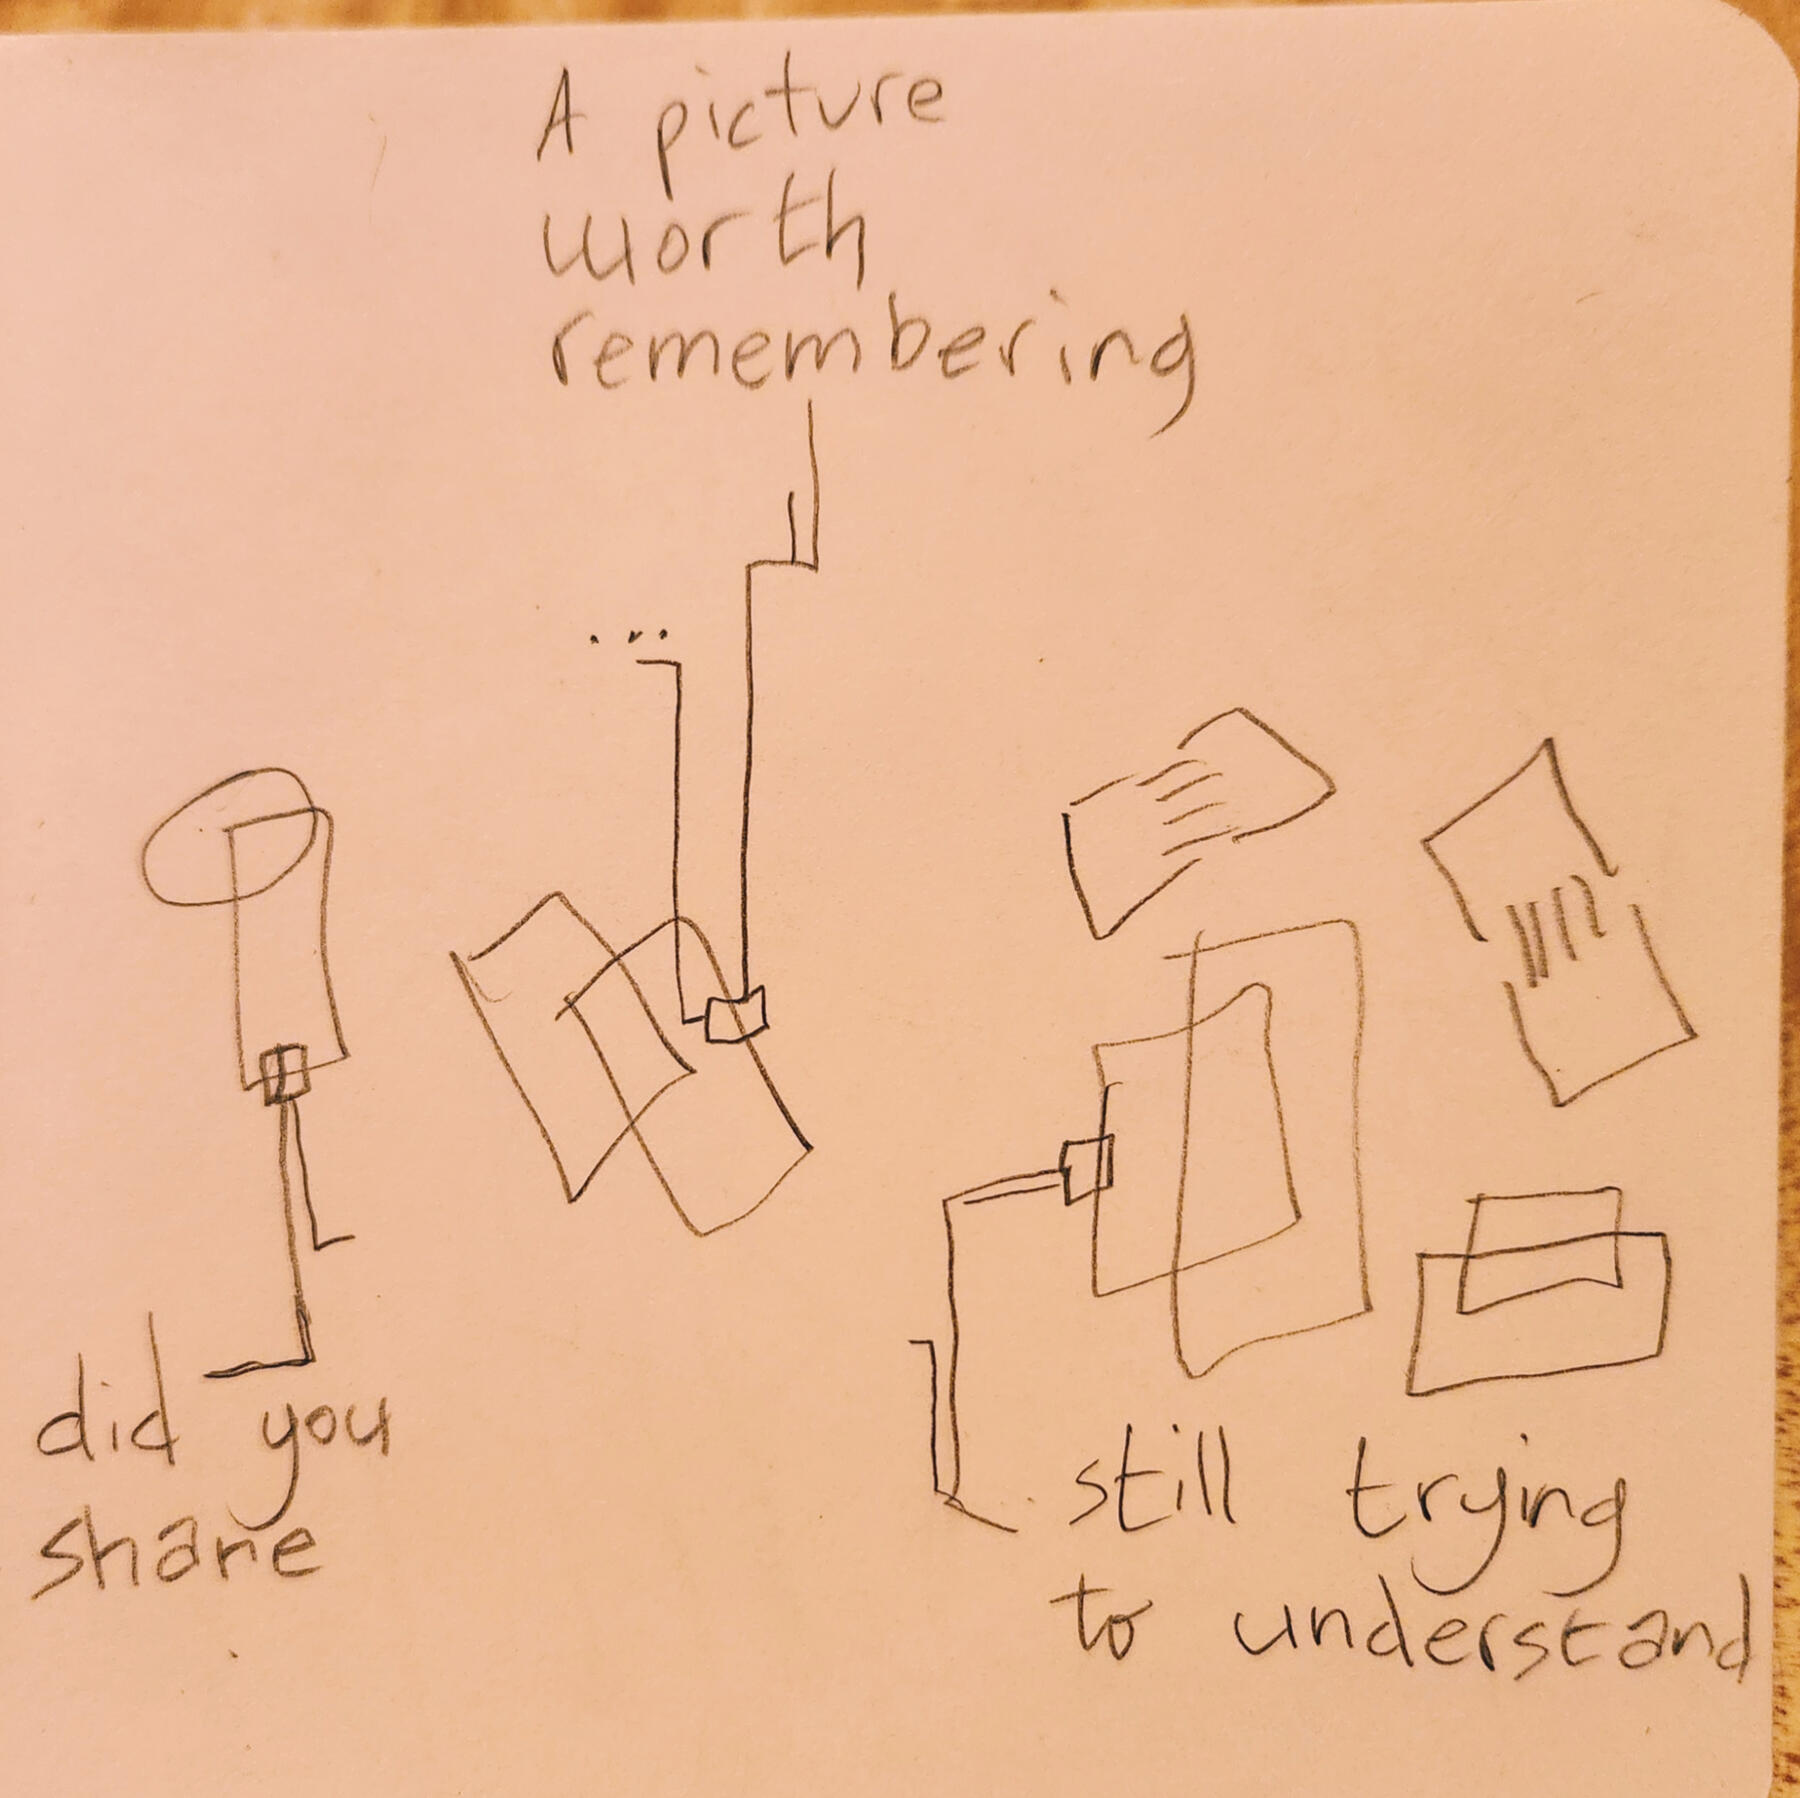 A picture
worth
remembering
...
did you
share
still trying
to understand